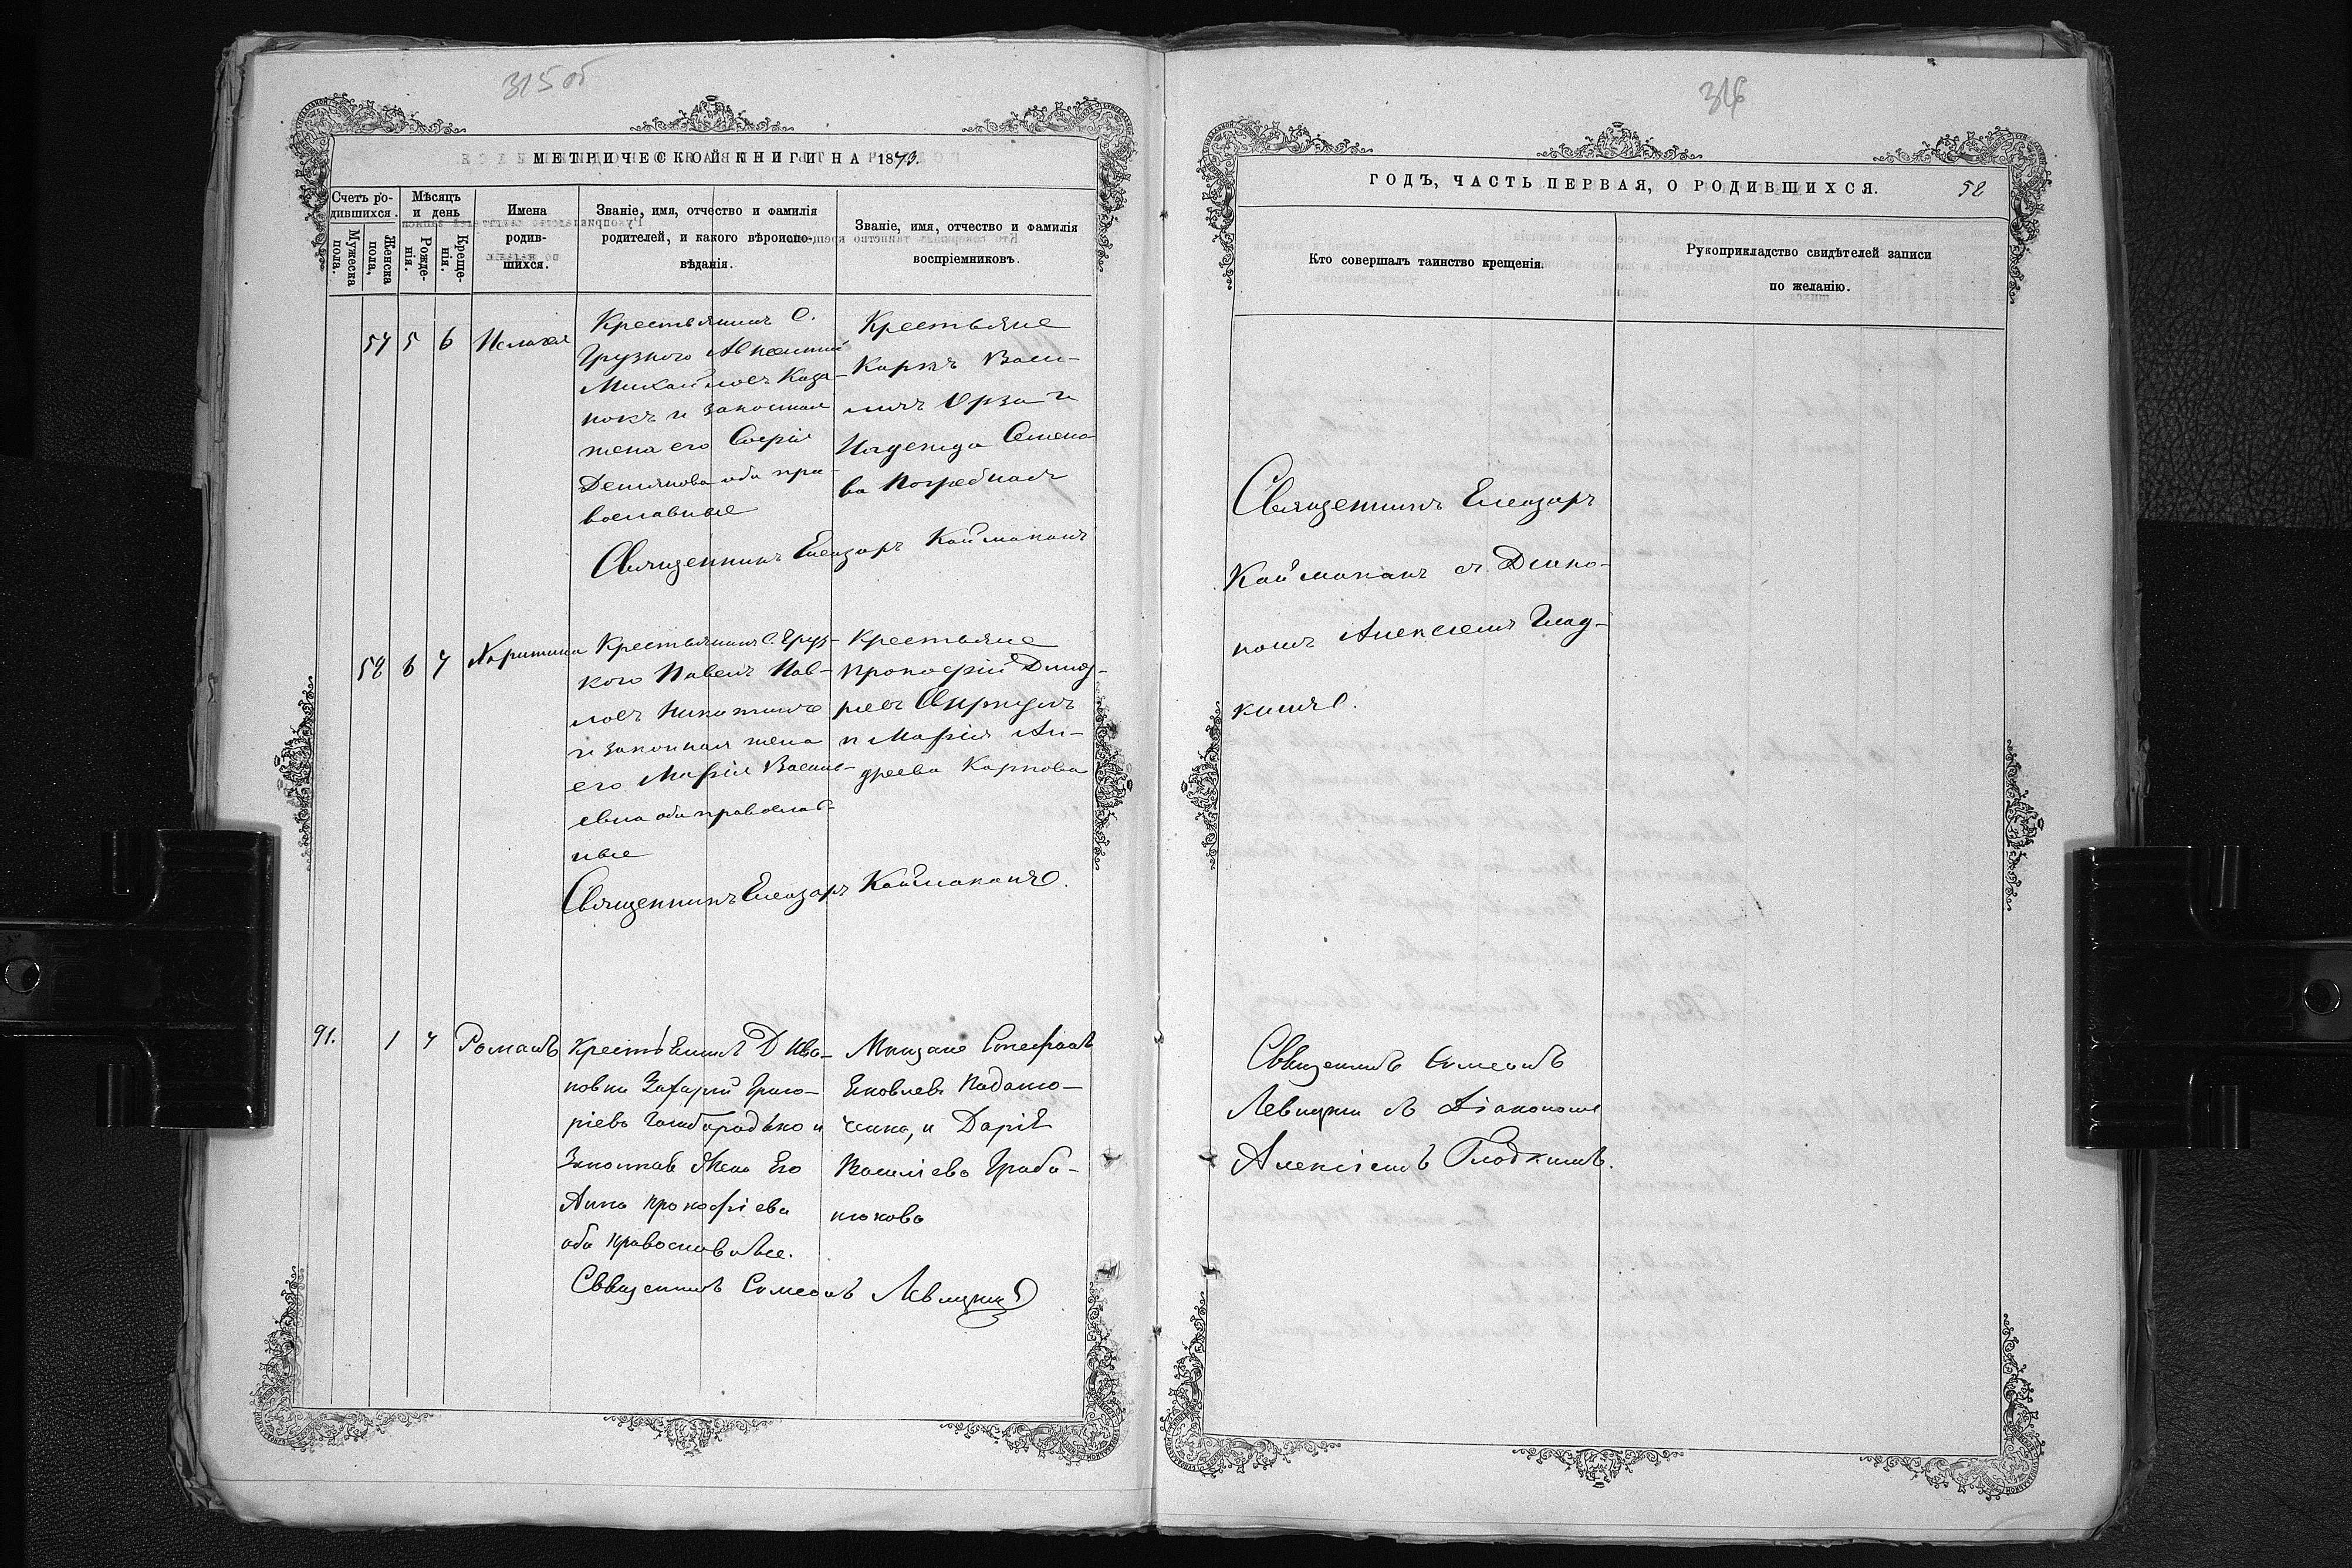 315 об
МЕТРИЧЕСКОЙ КНИГИ НА 1873.
Счетъ ро-
дившихся.
Мужеска
пола.
Женска
пола,
Мѣсяцъ
и день
Рожде-
нія.
Креще-
нія.
Имена
родив-
шихся.
Званіе, имя, отчество и фамилія
родителей, и какого вѣроиспо-
вѣданія.
Званіе, имя, отчество и фамилія
воспріемниковъ.
57 5 6
Крестьянинъ С.
Грузкого
Михайловъ Каза-
покъ и законная
жена его Софія
Демянова оба пра-
вославные
Крестьяне
Карпъ Васи-
Надежда Семено-
ва Погребная
Священникъ Елеазаръ Каймаканъ
58 6 7 Харитина
Крестьянинъ С. Груз-
кого Павелъ Пав-
ловъ
и законная жена
его Марія Василь-
евна оба православ-
ные
Крестьяне
Прокофій Дмит-
и Марія Ан-
дреева Карпова
Священникъ Елеазаръ Каймаканъ.
91. 1 7 Романъ
Крестьянинъ Д Ива-
новки Захарій Григо-
ріевъ и
Законная Жена Его
Анна Прокофіева
оба Православные.
Мещане Стефанъ
Яковлевъ
ченко, и Дарія
Василіева
Священникъ Симеонъ Левицкій
316
ГОДЪ, ЧАСТЬ ПЕРВАЯ, О РОДИВШИХСЯ. 58
Кто совершалъ таинство крещенія.
Рукоприкладство свидѣтелей записи
по желанію.
Священникъ Елеазаръ
Каймаканъ съ Діако-
номъ Алексіемъ Глад-
кимъ.
Священникъ Симеонъ
Левицкій съ Діакономъ
Алексіемъ Гладкимъ.